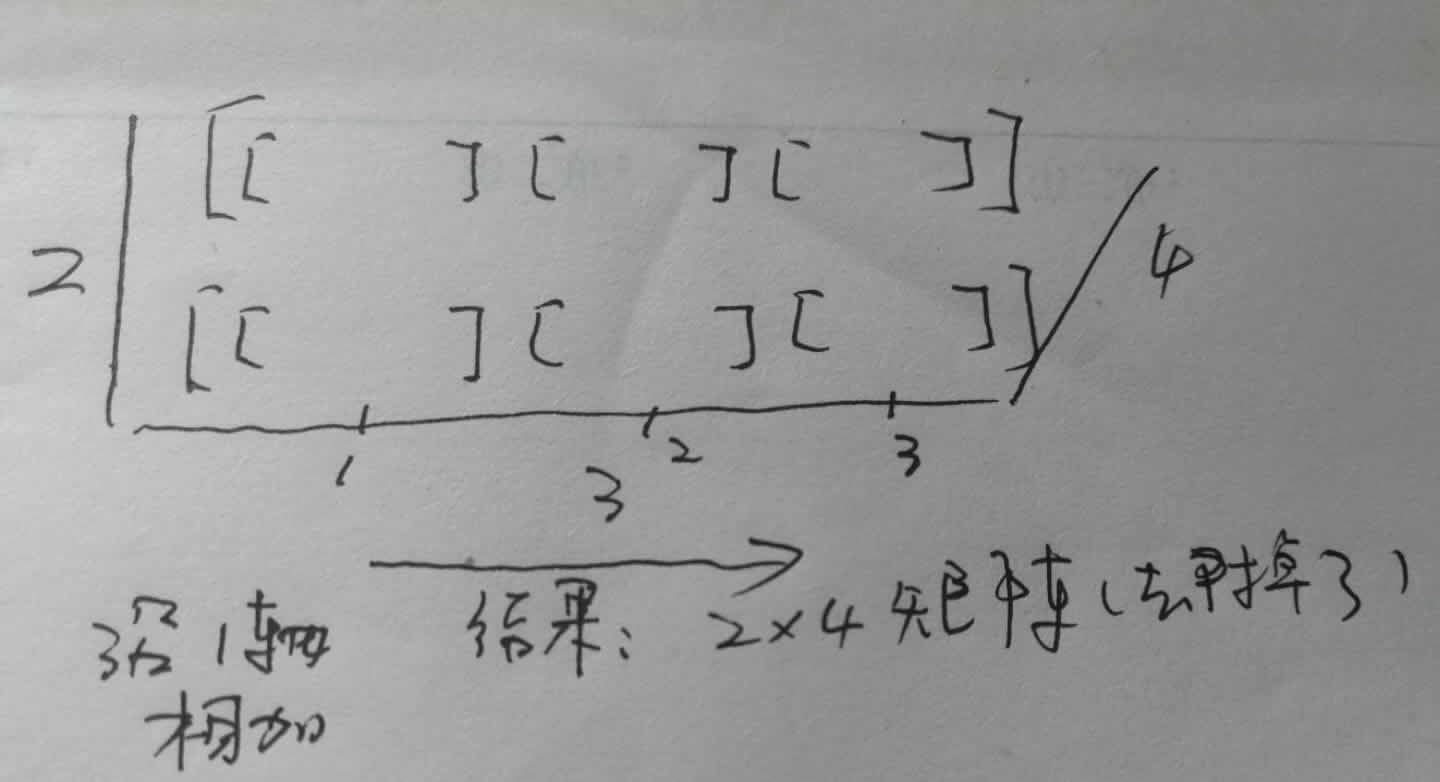 [[ ] [ ] [ ]]
2 4
[[ ] [ ] [ ]]
1 2 3
3
沿1轴 结果: 2×4矩阵(去掉了3)
相加